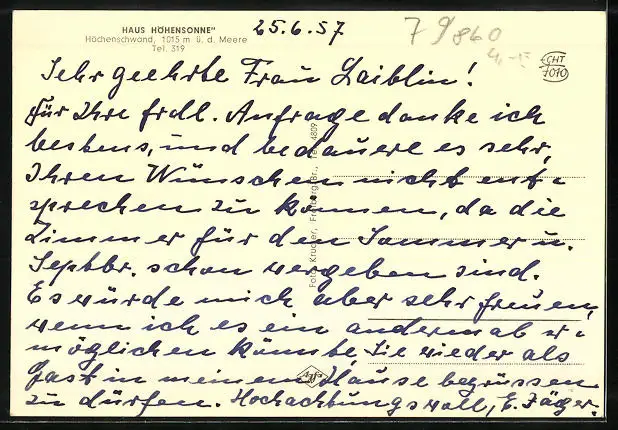 HAUS HÖHENSONNE"
Höchenschwand, 1015 m ü. d. Meere
Tel. 319
25.6.57
79860
ECHT
7010
Sehr geehrte Frau Laiblin!
Für Ihre frdl. Anfrage danke ich
bestens, und bedauere es sehr,
Ihren Wünschen nicht ent-
sprechen zu können, da die
Zimmer für den Sommer u.
Septbr. schon vergeben sind.
Es würde mich aber sehr freuen,
wenn ich es ein andermal er-
möglichen könnte, Sie wieder als
Gast in meinem Hause begrüssen
zu dürfen. Hochachtungsvoll, E. Jäger.
Foto Krucker, Freiburg Br., Tel. 4809
Agfa